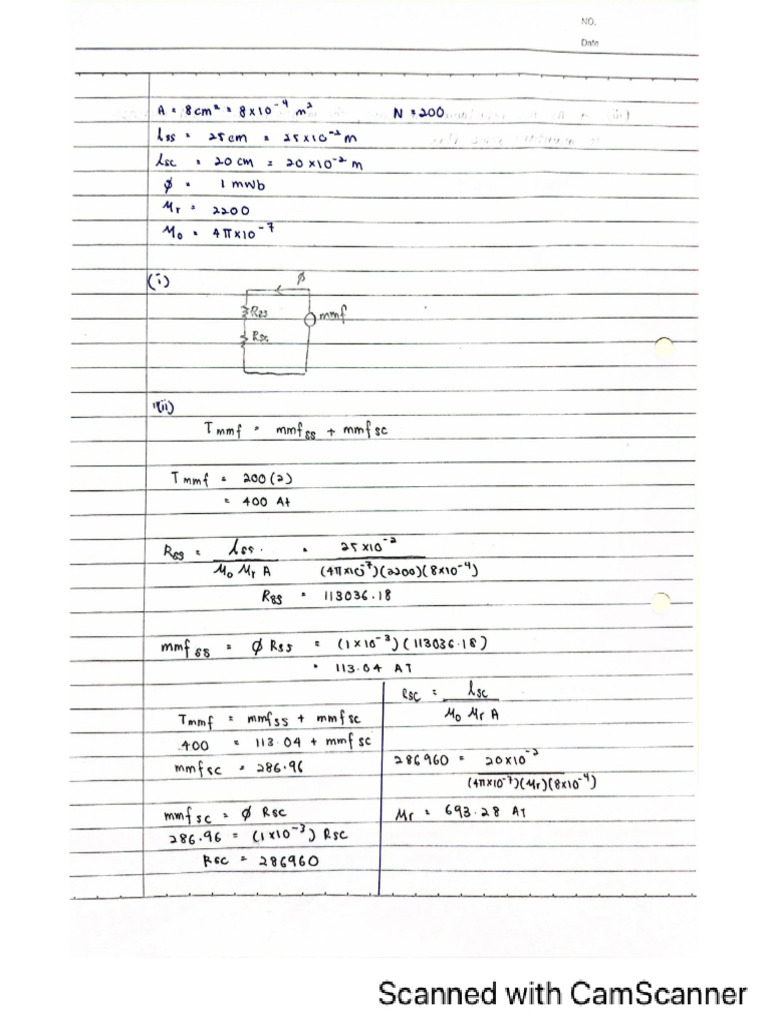 NO.
Date
A = 8cm² = 8×10⁻⁴ m² N = 200
lss = 25cm = 25×10⁻²m
lsc = 20cm = 20×10⁻² m
ϕ = 1 mWb
Mr = 2200
Mo = 4π×10⁻⁷
(i)
ϕ
Rss
mmf
Rsc
(ii)
Tmmf = mmfss + mmfsc
Tmmf = 200(2)
= 400 At
Rss = lss / Mo Mr A = 25×10⁻² / (4π×10⁻⁷)(2200)(8×10⁻⁴)
Rss = 113036.18
mmfss = ϕ Rss = (1×10⁻³)(113036.18)
= 113.04 AT
Tmmf = mmfss + mmfsc
400 = 113.04 + mmfsc
mmfsc = 286.96
mmfsc = ϕ Rsc
286.96 = (1×10⁻³) Rsc
Rsc = 286960
Rsc = lsc / Mo Mr A
286960 = 20×10⁻² / (4π×10⁻⁷)(Mr)(8×10⁻⁴)
Mr = 693.28 AT
Scanned with CamScanner